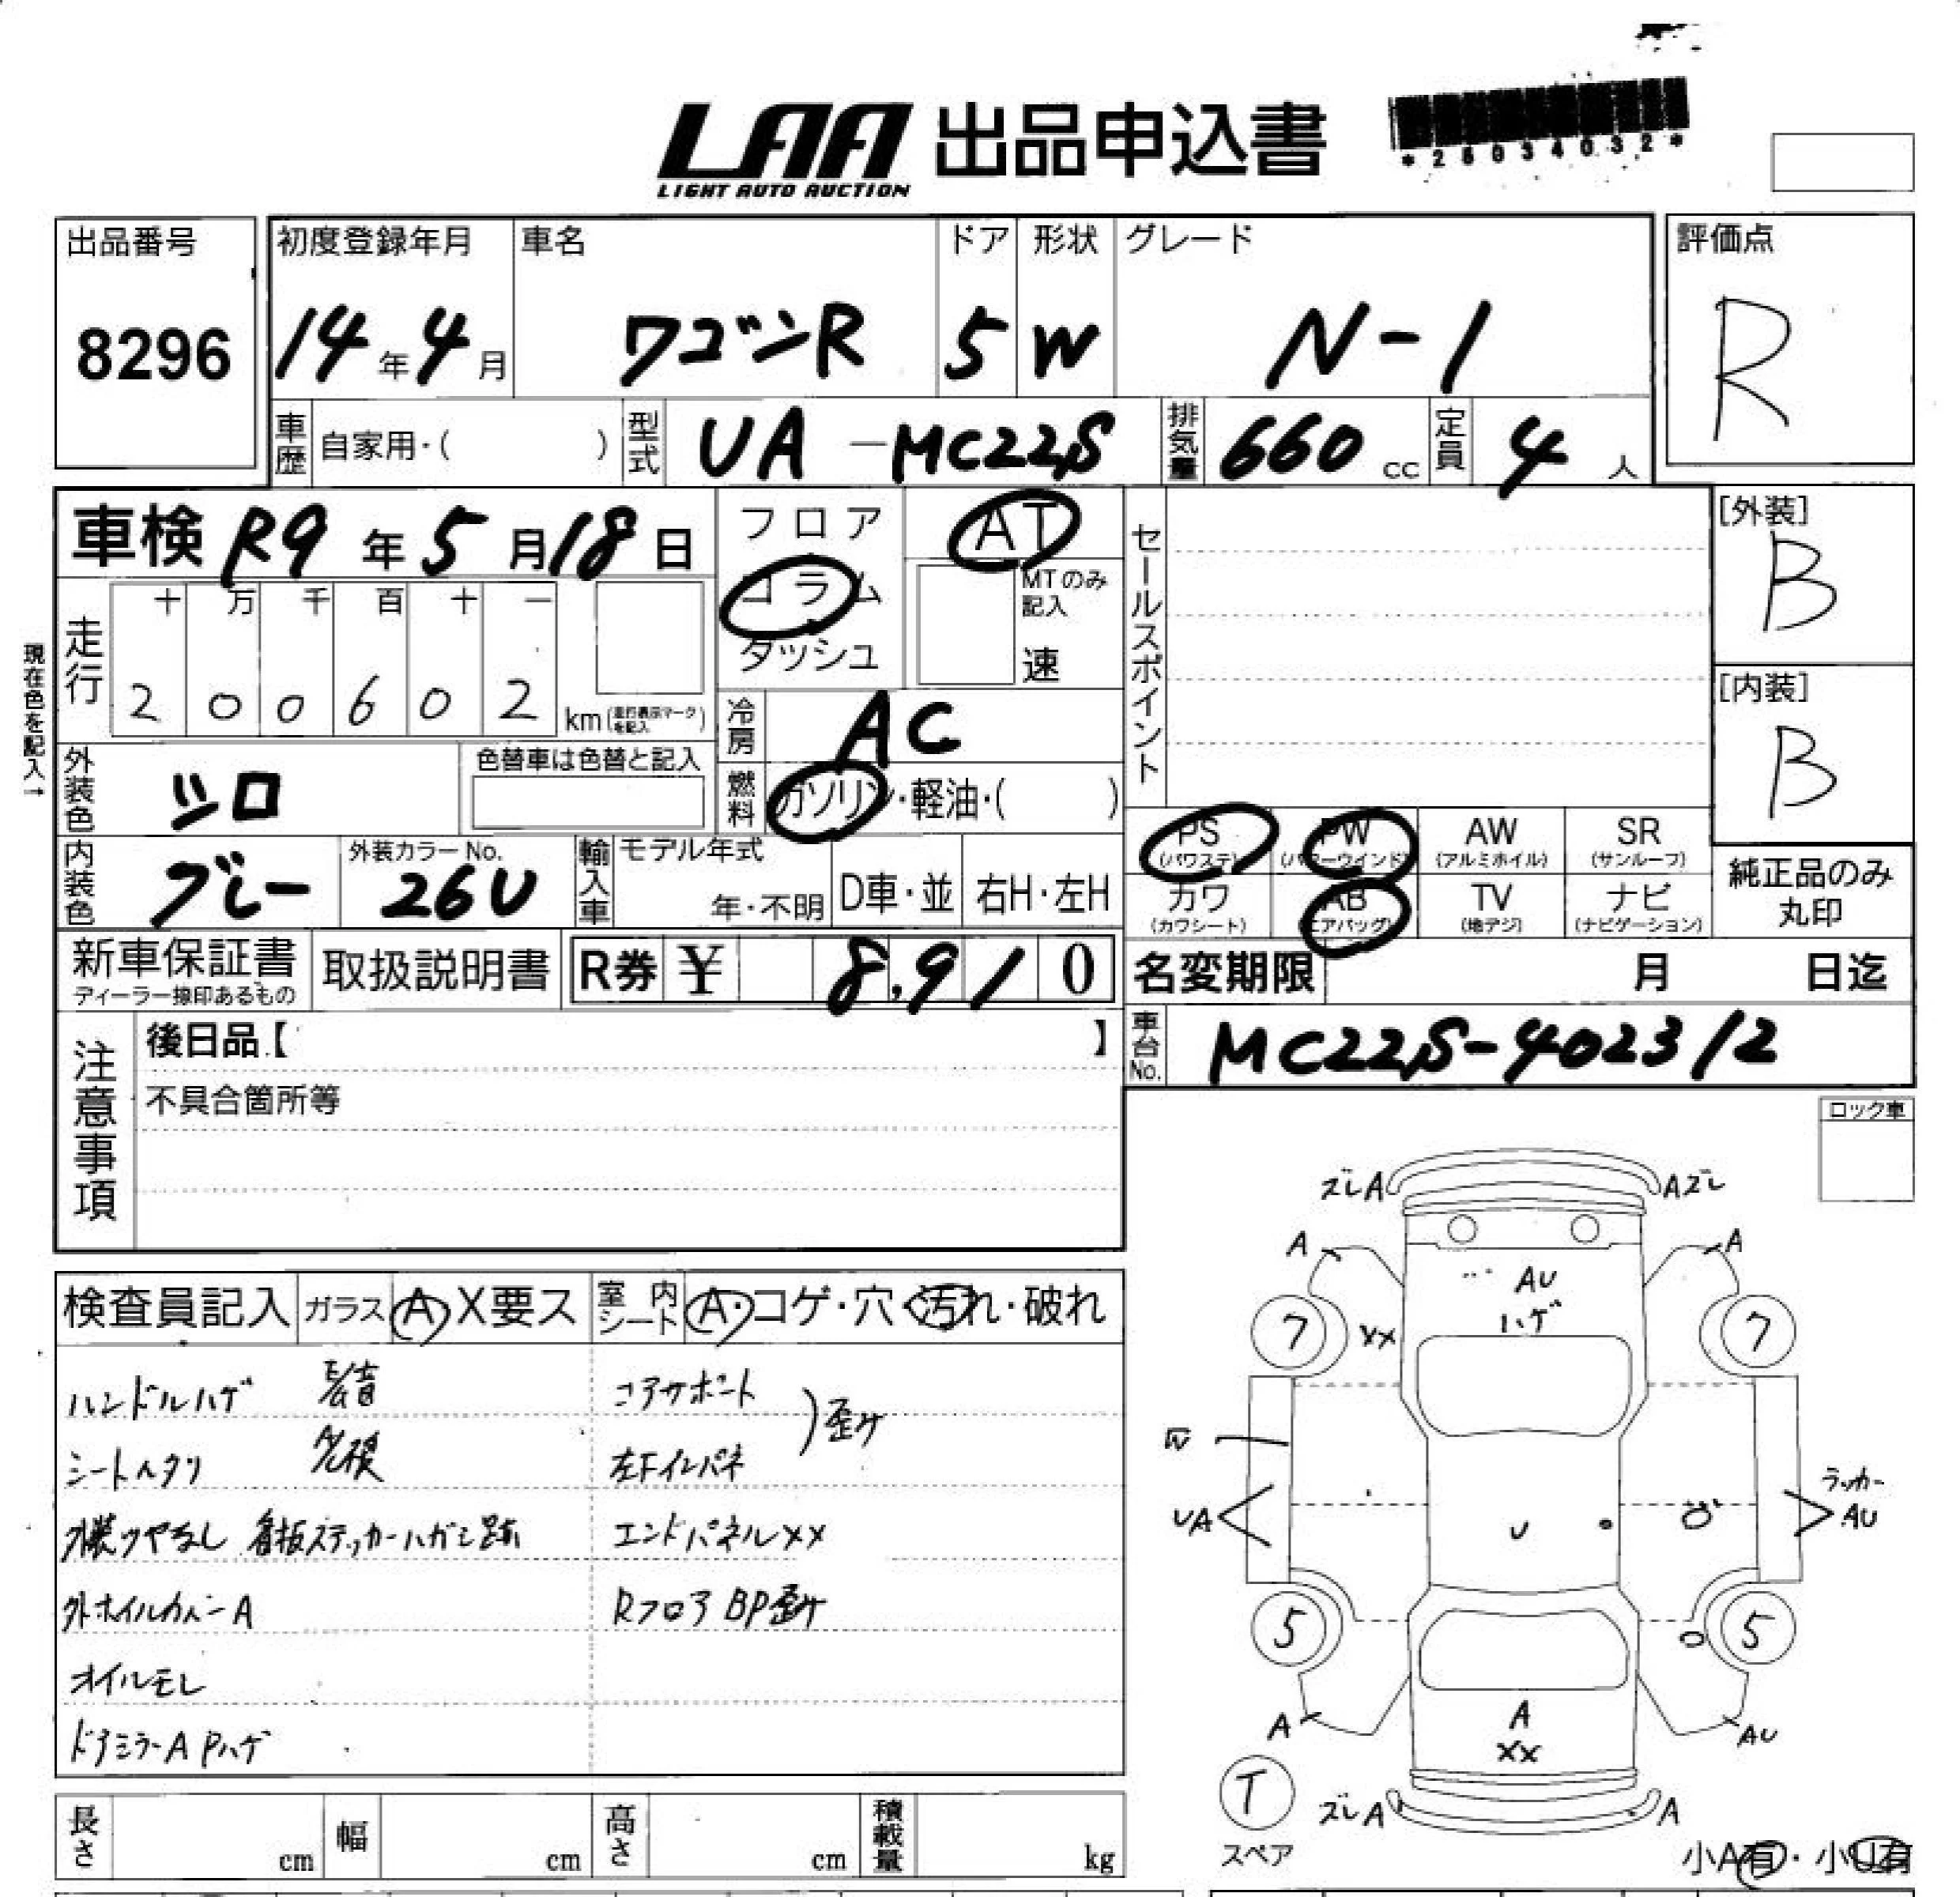 LAA 出品申込書
LIGHT AUTO AUCTION
出品番号
8296
初度登録年月
14年4月
車名
ワゴンR
ドア
5
形状
W
グレード
N-1
評価点
R
車歴 自家用・( )
型式 UA-MC22S
排気量 660 cc
定員 4人
車検 R9年5月18日
フロア
コラム
ダッシュ
AT
MTのみ
記入
速
セールスポイント
[外装]
B
[内装]
B
現在色を記入→
走行
十 万 千 百 十 一
2 0 0 6 0 2 km
冷房 AC
外装色 シロ
色替車は色替と記入
燃料 ガソリン・軽油・( )
内装色 グレー
外装カラーNo.
26U
輸入車 モデル年式
年・不明 D車・並 右H・左H
PS
(パワステ)
PW
(パワーウインド)
AW
(アルミホイル)
SR
(サンルーフ)
カワ
(カワシート)
AB
(エアバッグ)
TV
(地デジ)
ナビ
(ナビゲーション)
純正品のみ
丸印
新車保証書
ディーラー捺印あるもの
取扱説明書
R券 ¥ 8,910
名変期限 月 日迄
注意事項
後日品【 】
不具合箇所等
車台No. MC22S-402312
ロック車
検査員記入 ガラス A X要ス 室内シート A・コゲ・穴・汚れ・破れ
ハンドルハゲ
シートヘタリ
外装ツヤなし 看板ステッカーハガシ跡
外ホイルカバーA
オイルモレ
ドアミラーA Pハゲ
コアサポート
左Fインパネ
歪ケ
エンドパネルXX
Rフロア BP歪ケ
ズレA
Aズレ
A
A
AU
ハゲ
7
XX
7
UA
U
ラッカー
AU
5
5
A
A
XX
AU
T
スペア
ズレA
A
小A有・小U有
長さ cm 幅 cm 高さ cm 積載量 kg